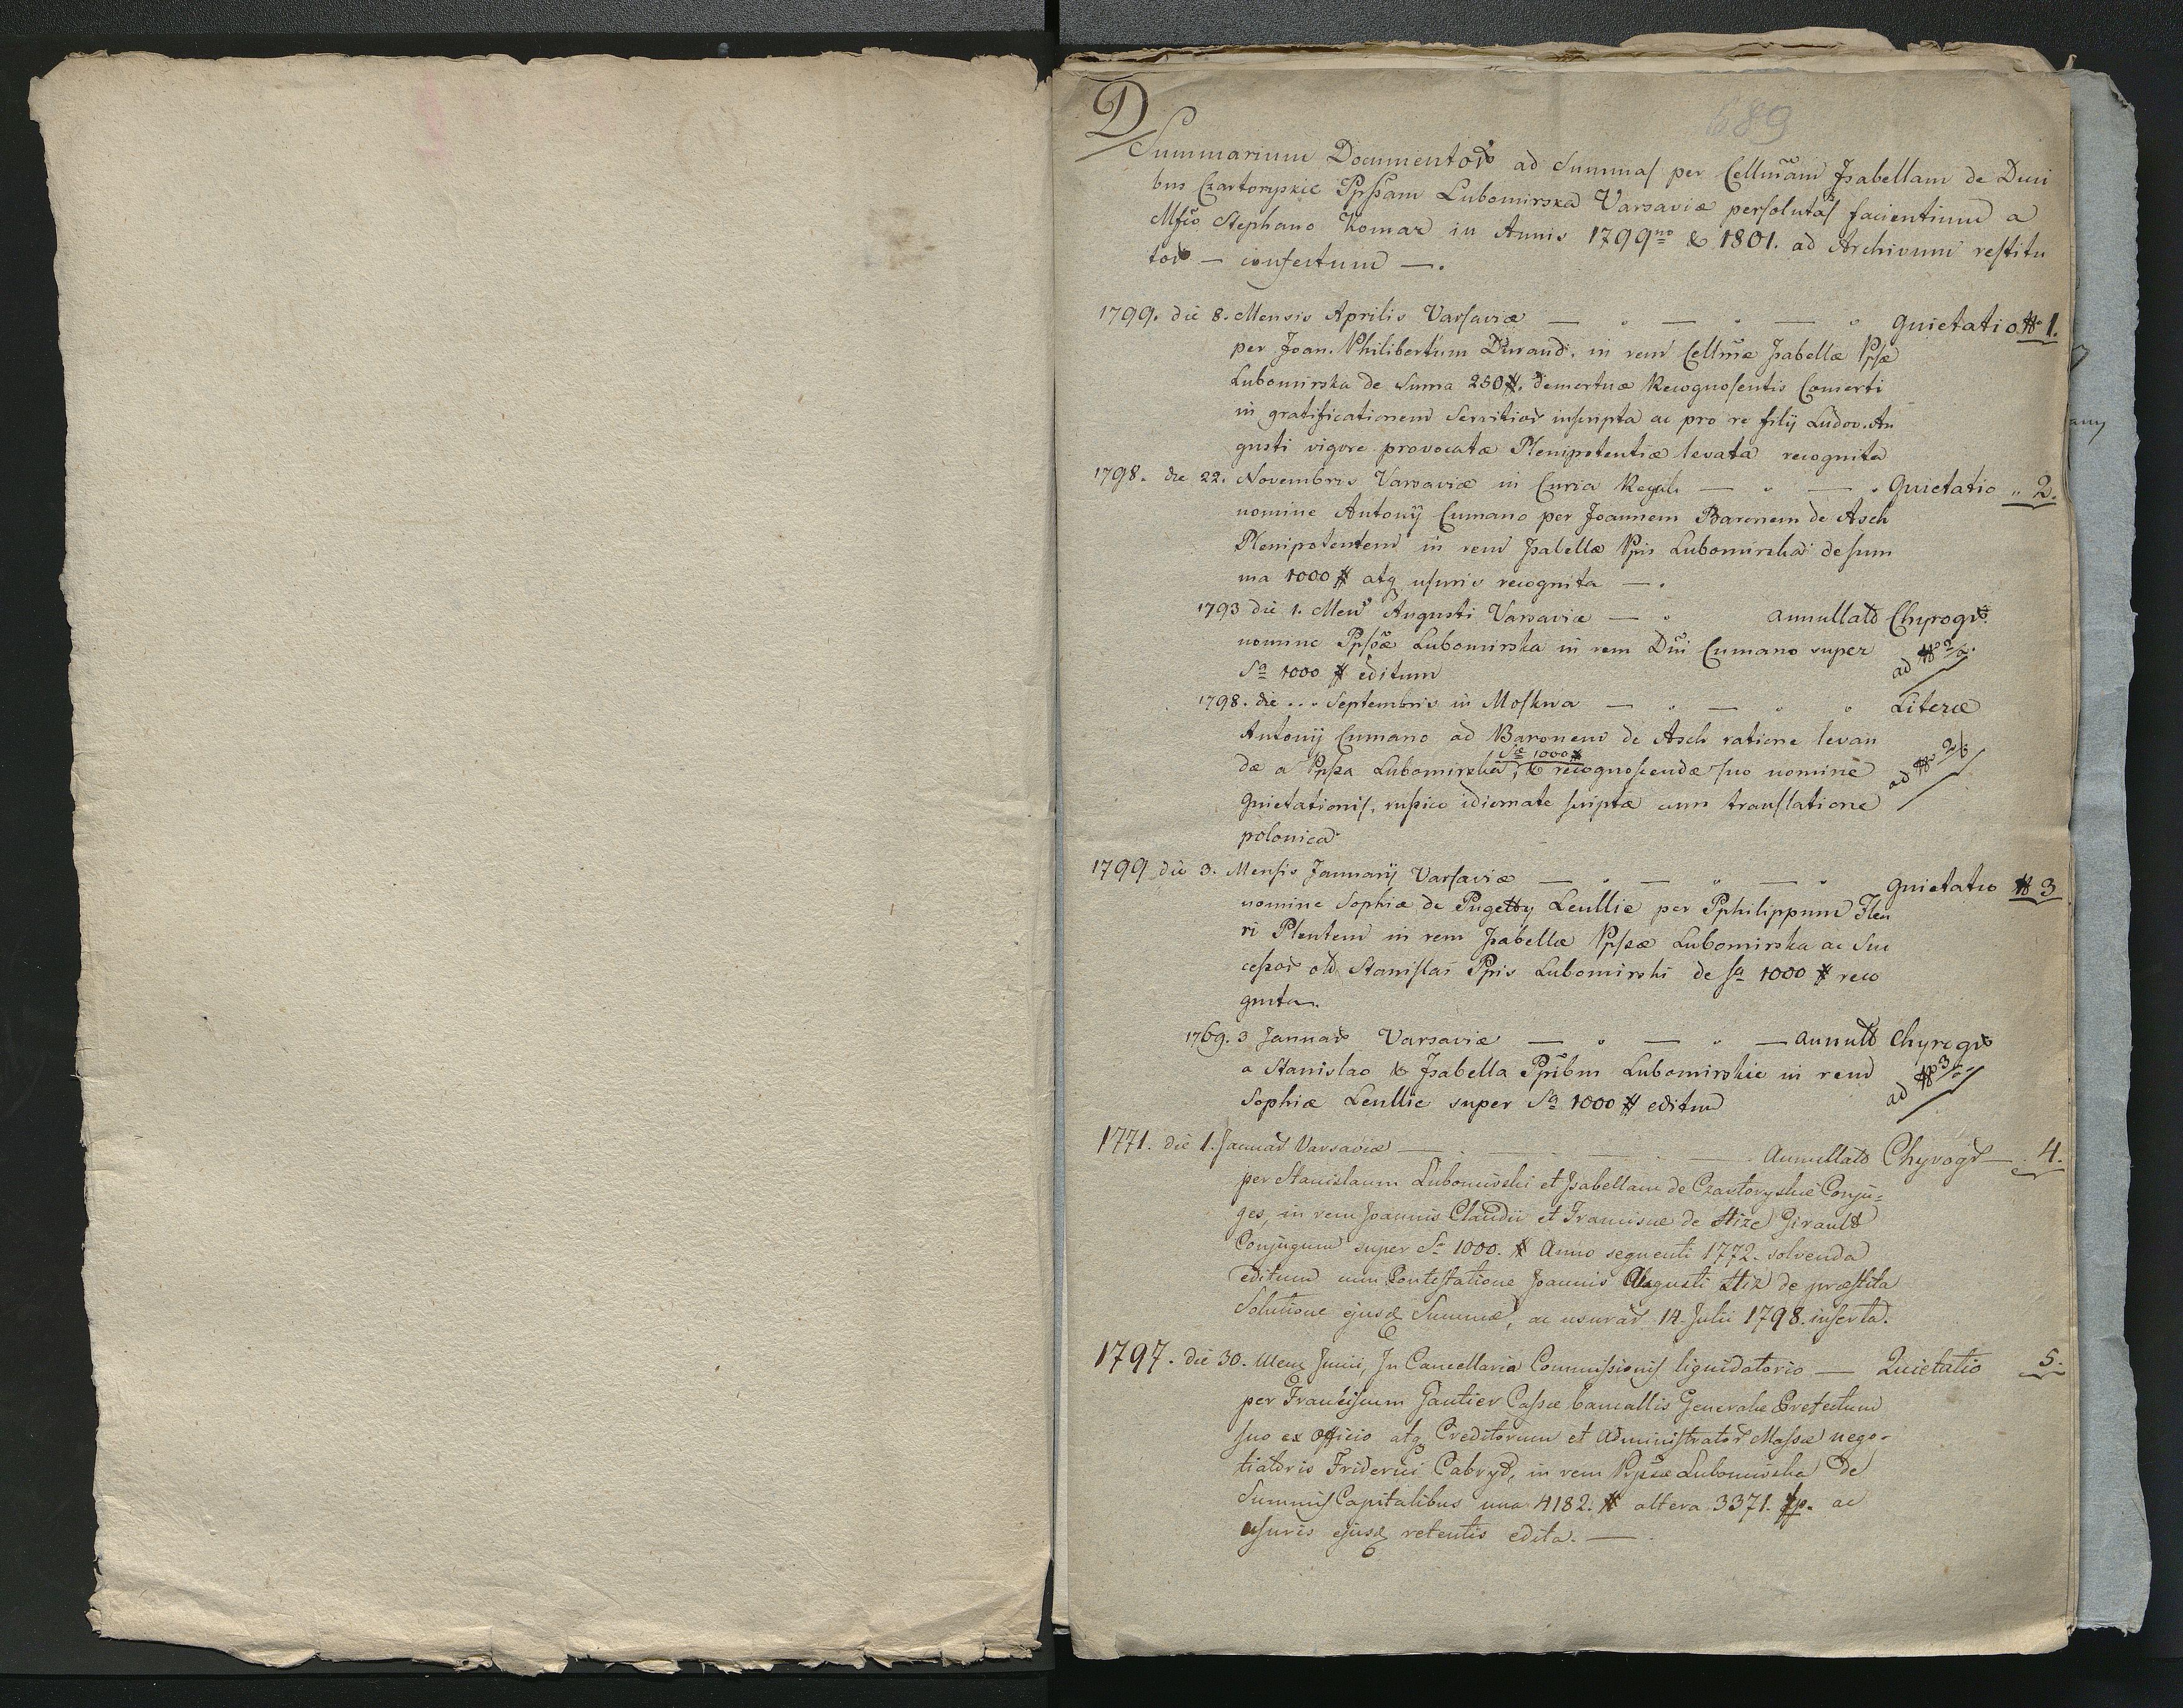 D
689
Summarium Documentor ad Summas per Cellmam Isabellam de Duci
bus Czartoryskie Ppssam Lubomirska Varsaviæ persolutas facientium a
Mfco Stephano Komar in Annis 1799no & 1801. ad Archivum restitu
tor — confectum —.
1799. die 8. Mensis Aprilis Varsaviæ — " — " — " Quietatio No 1.
per Joan. Philibertum Durand. in rem Cellmæ Isabellæ Ppsæ
Lubomirska de Suma 250 #. demortuæ Recognosentis Consorti
in gratificationem Servitior inscripta ac pro re filij Ludov. Au
gusti vigore provocatæ Plenipotentiæ levata recognita
1798. die 22. Novembris Varsaviæ in Curia Regali — " — " Quietatio " 2.
nomine Antonij Cumano per Joannem Baronem de Asch
Plenipotentem in rem Isabellæ Ppis Lubomirska de sum
ma 1000 # atq usuris recognita —.
1793 die 1. Mens Augusti Varsaviæ — " annullat Chyrogr.
nomine Ppssæ Lubomirska in rem Dni Cumano super
Sa 1000 # editum
ad No 2/a.
1798. die ... Septembris in Moskwa — " — " " Literæ
Antonij Cumano ad Baronem de Asch ratione levan
Sæ 1000 #
dæ a Ppssa Lubomirska, & recognoscendæ suo nomine
ad No 2/b
Quietationis, russico idiomate scriptæ cum translatione
polonica
1799 die 3. Mensis Januarij Varsaviæ — " — " — " Quietatio No 3
nomine Sophiæ de Pugetty Leullie per Pphilippum Fleu
ri Plentem in rem Isabellæ Ppssæ Lubomirska ac Suc
cessor old Stanislai Ppis Lubomirski de sa 1000 # reco
gnita.
1769. 3 Januar Varsaviæ — " — " — annult Chyrogr
a Stanislao & Isabella Ppibus Lubomirskie in rem
ad No 3/a.
Sophiæ Leullie super Sa 1000 # editum
1771. die 1. Januar Varsaviæ — . — . — Annullat Chyrogr — 4.
per Stanislaum Lubomirski et Isabellam de Czartoryskie Conju=
ges, in rem Joannis Claudii et Franciscæ de Hize Girault
Conjugum super Sa 1000. # Anno sequenti 1772. solvenda
editum cum Contestatione Joannis Augusti Hiz de præstita
Solutione ejusd Summæ, ac usurar 14. Julii 1798. inserta.
1797. die 30. Mens Junii, In Cancellaria Commissionis liquidatorio — Quietatio 5.
per Franciscum Gautier Cassæ bancallis Generalie Prefectum
suo ex officio atq Creditorum et Administrator Massæ nego-
tiatoris Friderici Cabryt, in rem Ppssæ Lubomirska de
Summis Capitalibus una 4182. # altera 3371. fp. ac
usuris ejusd retentis edita. —